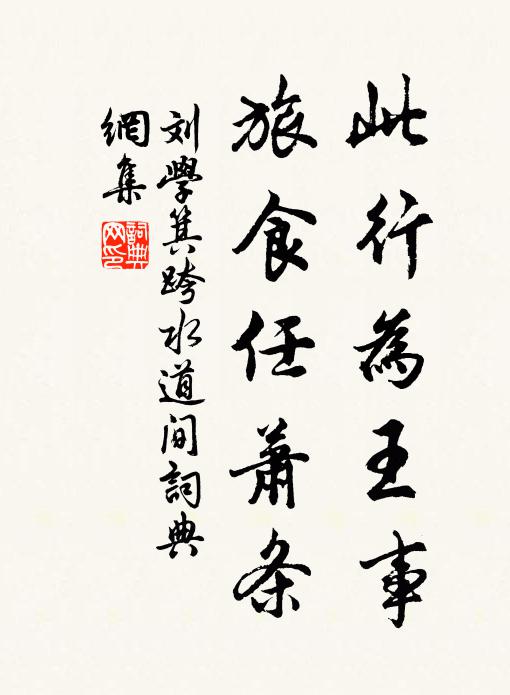 此行為王事
旅食任蕭条
刘學箕跨水道间詞典
網集
詞典
网印